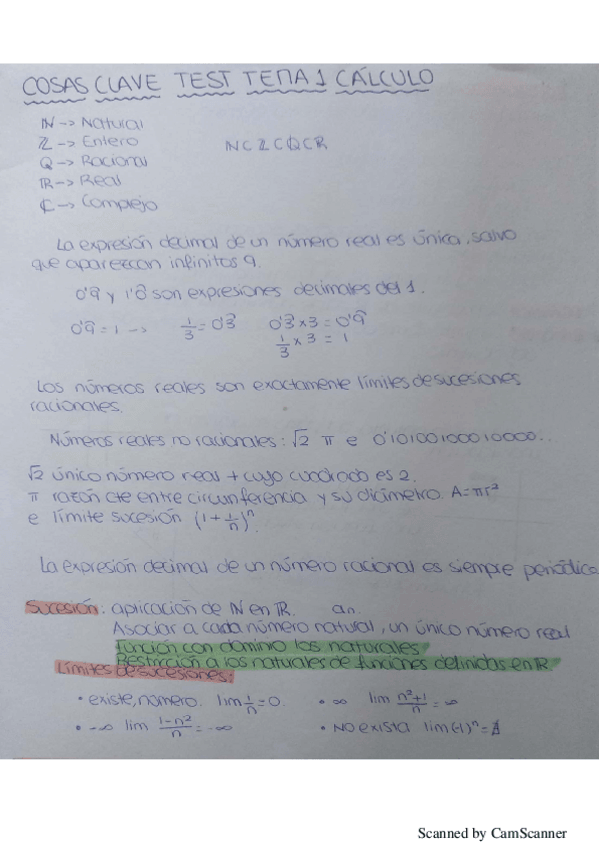 COSAS CLAVE TEST TEMA 1 CÁLCULO
ℕ -> Natural
ℤ -> Entero
ℚ -> Racional
ℝ -> Real
ℂ -> Complejo
ℕ⊂ℤ⊂ℚ⊂ℝ
La expresión decimal de un número real es única, salvo
que aparezcan infinitos 9.
0'9̂ y 1'0̂ son expresiones decimales del 1.
0'9̂ = 1 -> 1/3 = 0'3̂ 0'3̂ x 3 = 0'9̂
1/3 x 3 = 1
Los números reales son exactamente límites de sucesiones
racionales.
Números reales no racionales: √2 π e 0'10100100010000...
√2 único número real + cuyo cuadrado es 2.
π razón cte entre circunferencia y su diámetro. A=πr²
e límite sucesión (1+1/n)ⁿ.
La expresión decimal de un número racional es siempre periódica.
Sucesión: aplicación de ℕ en ℝ. an.
Asociar a cada número natural, un único número real
función con dominio los naturales.
Restricción a los naturales de funciones definidas en ℝ.
Límites de sucesiones:
• existe, número. lim 1/n = 0. • ∞ lim n²+1/n = ∞
• -∞ lim 1-n²/n = -∞ • No exista lim(-1)ⁿ = ∄
Scanned by CamScanner